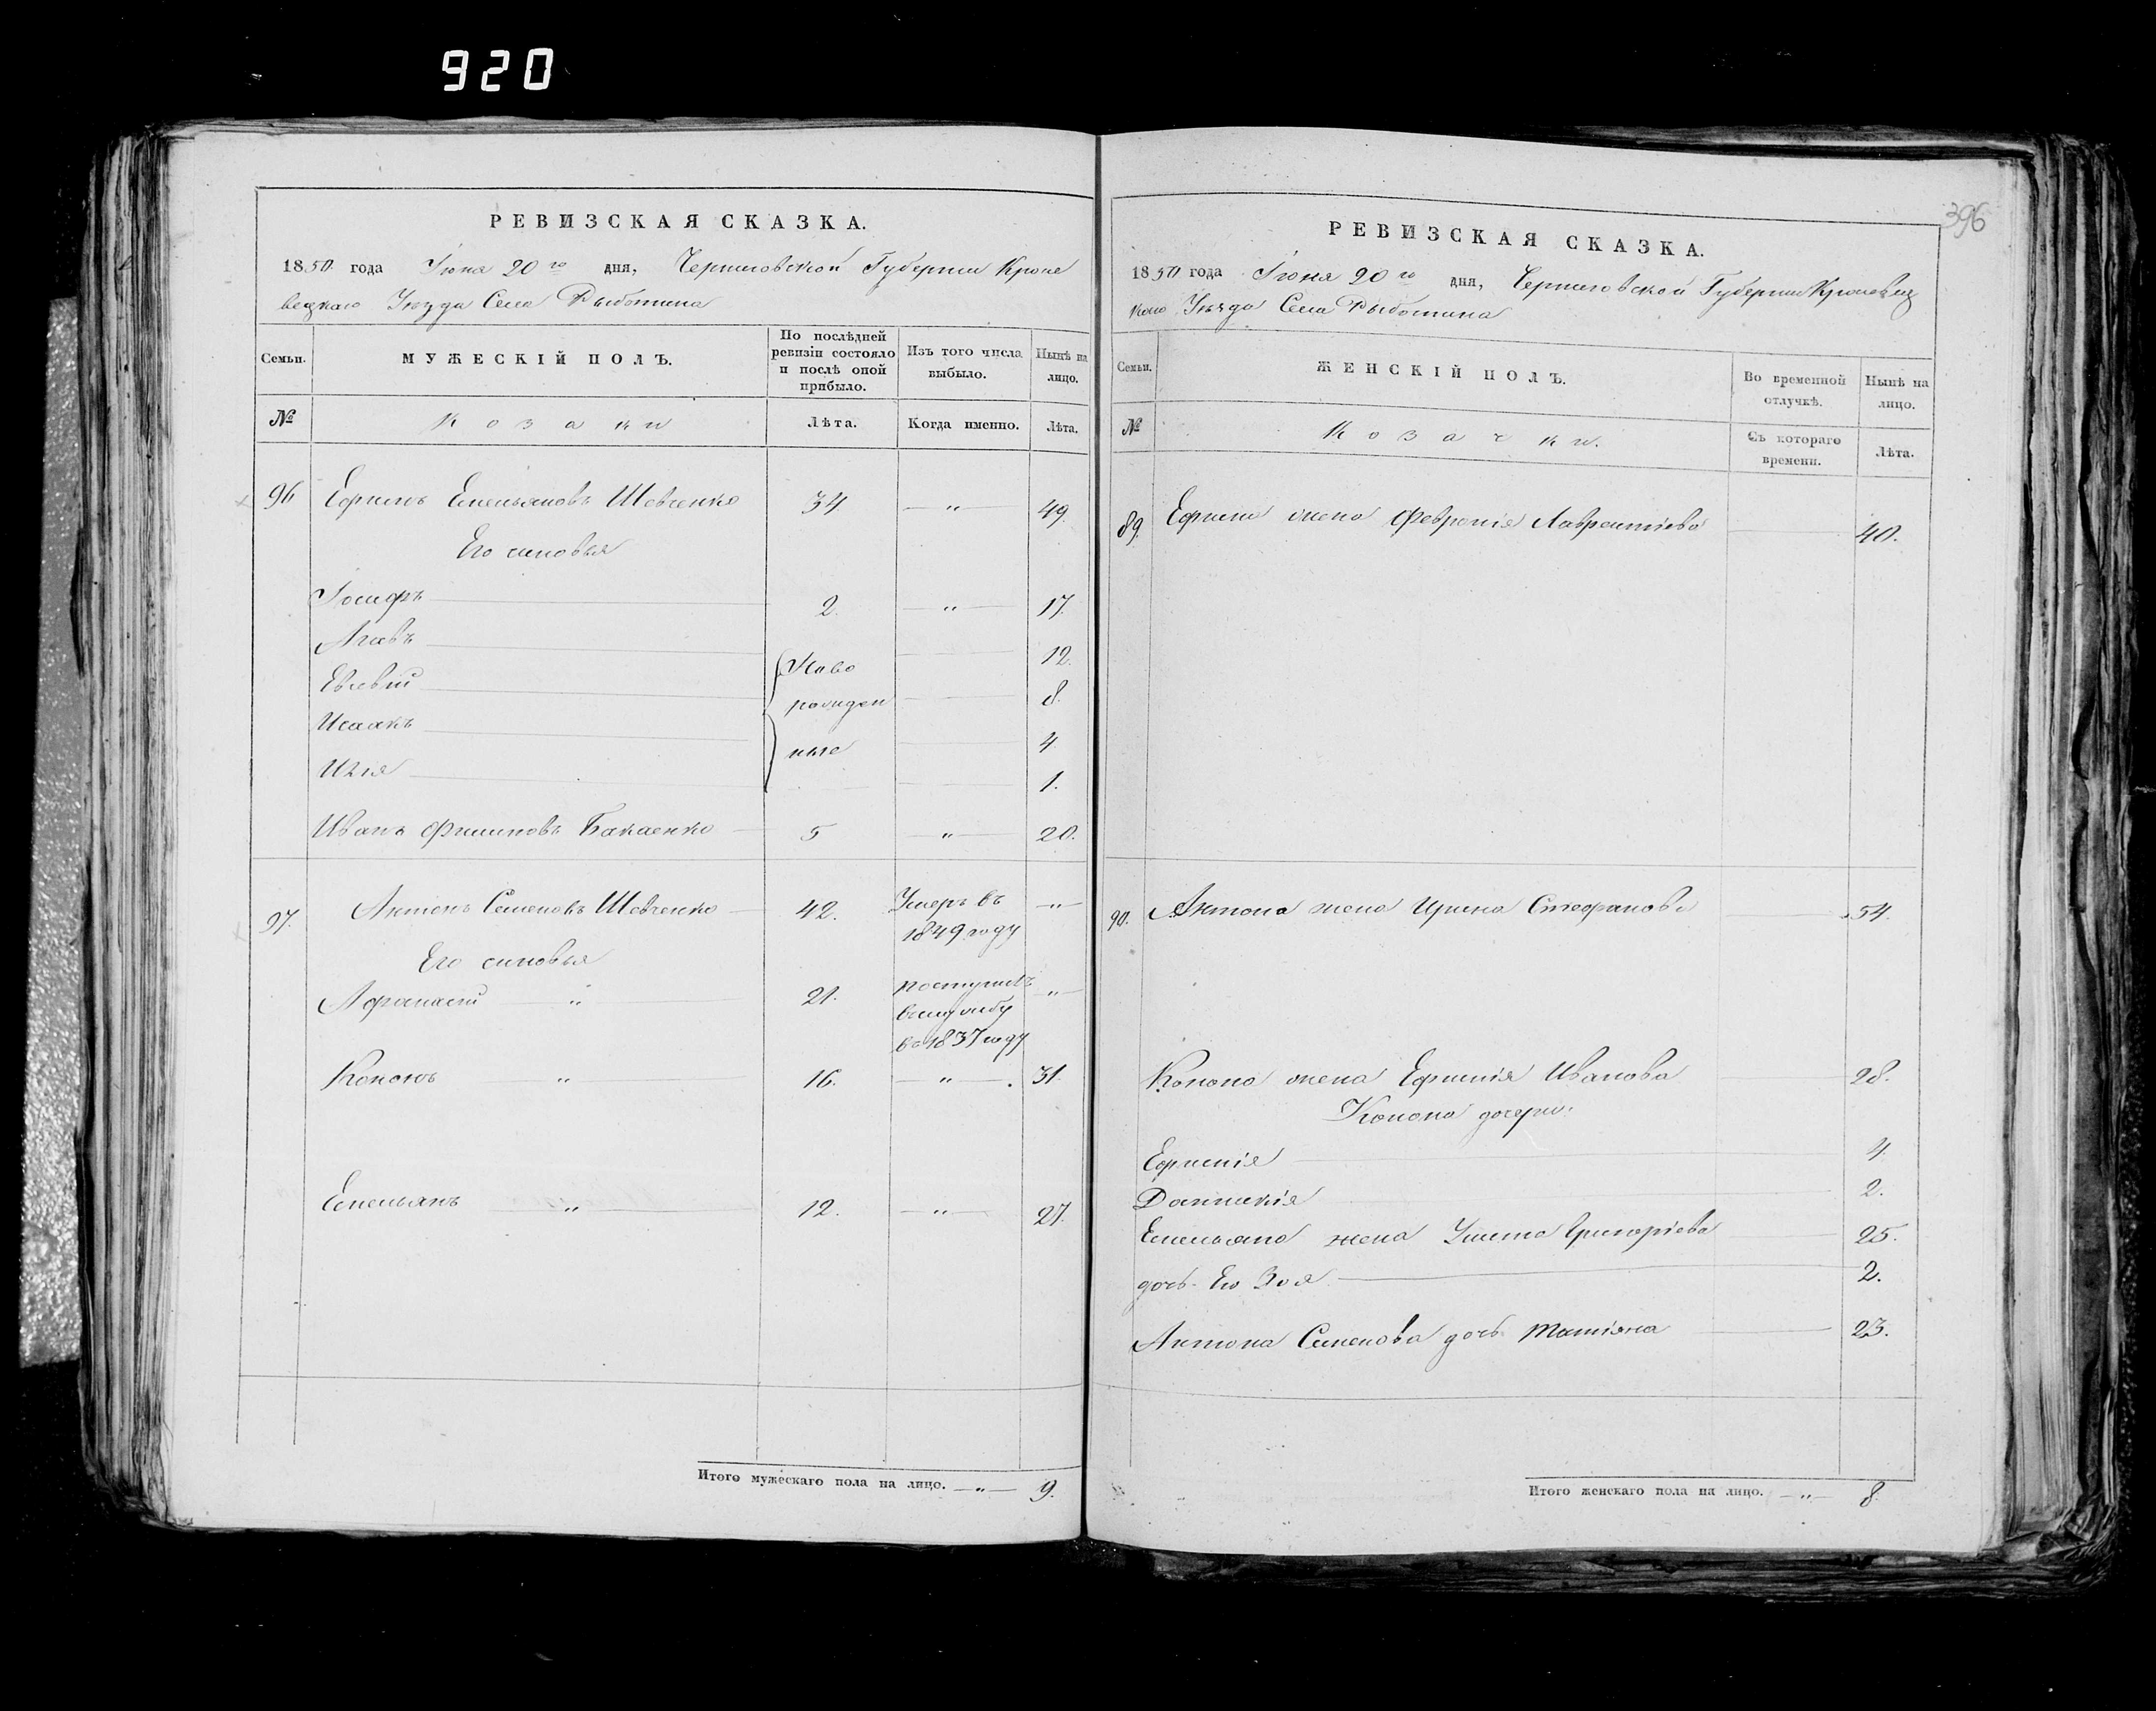 920
РЕВИЗСКАЯ СКАЗКА.
1850 года Іюня 20го дня, Черниговской Губерніи Кроле
вецкаго Уѣзда Села Рыботина
Семьи. МУЖЕСКІЙ ПОЛЪ. По послѣдней ревизіи состояло и послѣ оной прибыло. Изъ того числа выбыло. Нынѣ на лицо.
№ Козаки Лѣта. Когда именно. Лѣта.
96 Ефимъ Емельяновъ Шевченко 34 — „ — 49.
Его сыновья
Іосифъ 2. — „ — 17.
12.
Евсевій 8.
Исаакъ 4
Илія 1.
{ Ново
рожден
ные
Иванъ Филиповъ Бакаенко 5 — „ — 20.
97. Антонъ Семеновъ Шевченко 42. Умеръ въ — „ —
1849 году
Его сыновья
Афанасій „ 21. поступилъ — „ —
вслужбу
въ 1837 году
Кононъ „ 16. — „ — . 31.
Емельянъ „ 12. — „ — 27.
Итого мужескаго пола на лицо. — „ — 9.
396
РЕВИЗСКАЯ СКАЗКА.
1850 года Іюня 20го дня, Черниговской Губерніи Кролевец
каго Уѣзда Села Рыботина
Семьи. ЖЕНСКІЙ ПОЛЪ. Во временной отлучкѣ. Нынѣ на лицо.
№ Козачки. Съ котораго времени. Лѣта.
89. Ефима жена Февронія Лаврентіева 40.
90. Антона жена Ирина Стефанова 54.
Конона жена Ефимія Иванова 28.
Конона дочери:
Ефимія 4.
Домникія 2.
Емельяна жена Улита Григоріева 25.
дочь Его Зоя 2.
Антона Семенова дочь Татіяна 23.
Итого женскаго пола на лицо. — „ — 8.